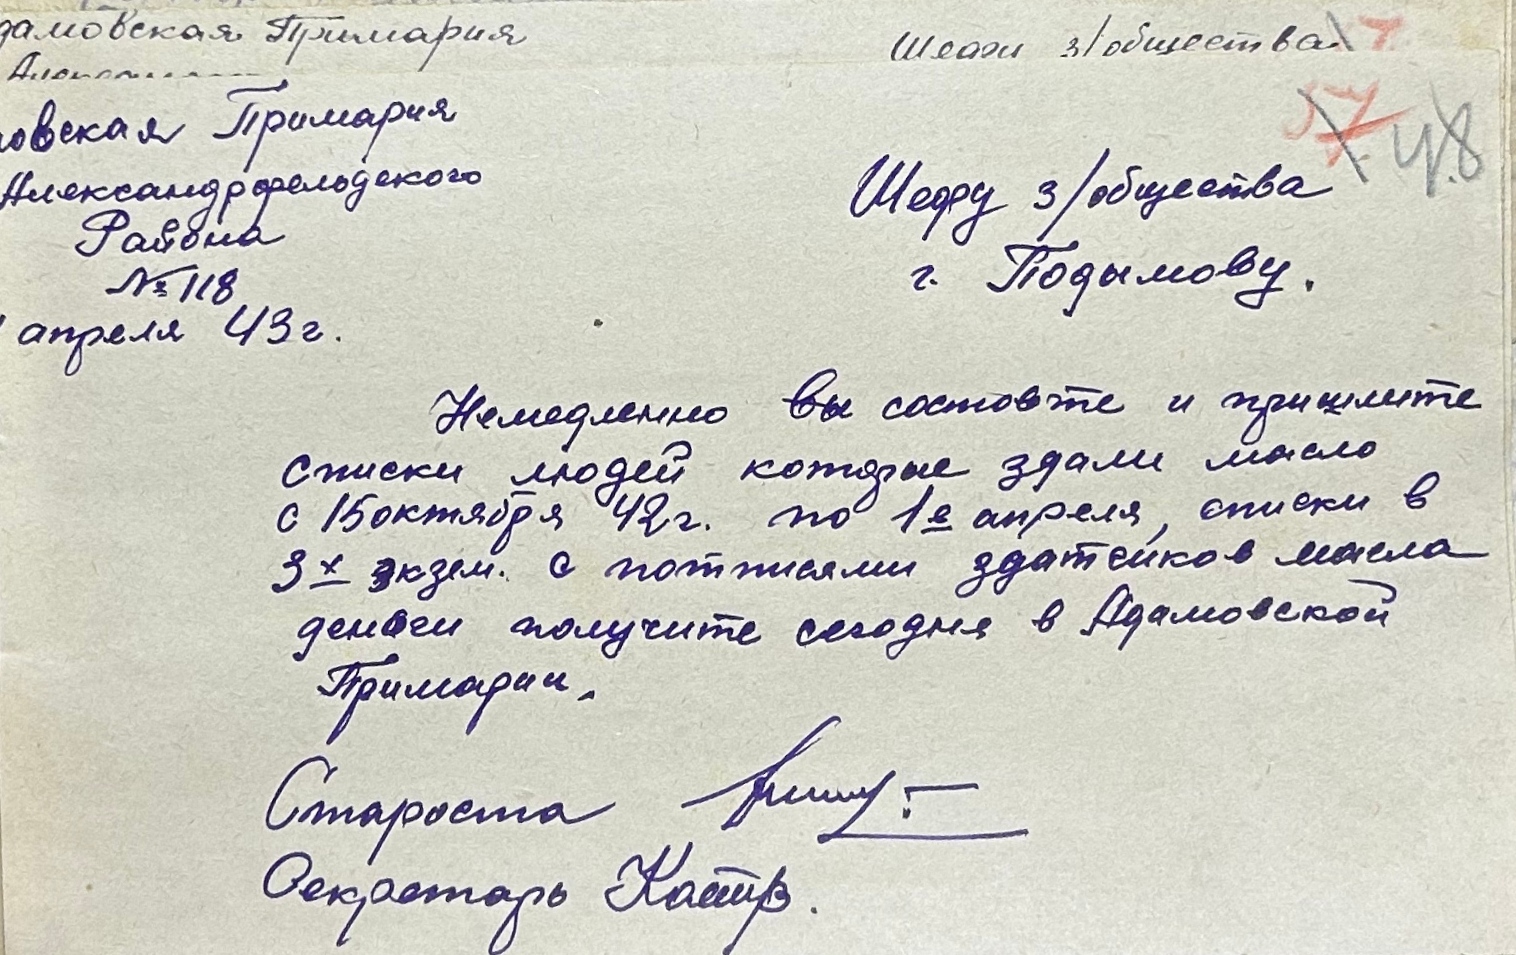 дамовская Примария
Шефу з/общества
овская Примария
Александрфельдского
Района
№ 118
апреля 43 г.
57 48
Шефу з/общества
г. Подымову.
Немедленно вы состовте и пришлите
списки людей которые здали масло
с 15 октября 42 г. по 1е апреля, списки в
3х экзем. с потписями здатсиков масла
деньги получите сегодня в Адамовской
Примарии.
Староста
Секретарь